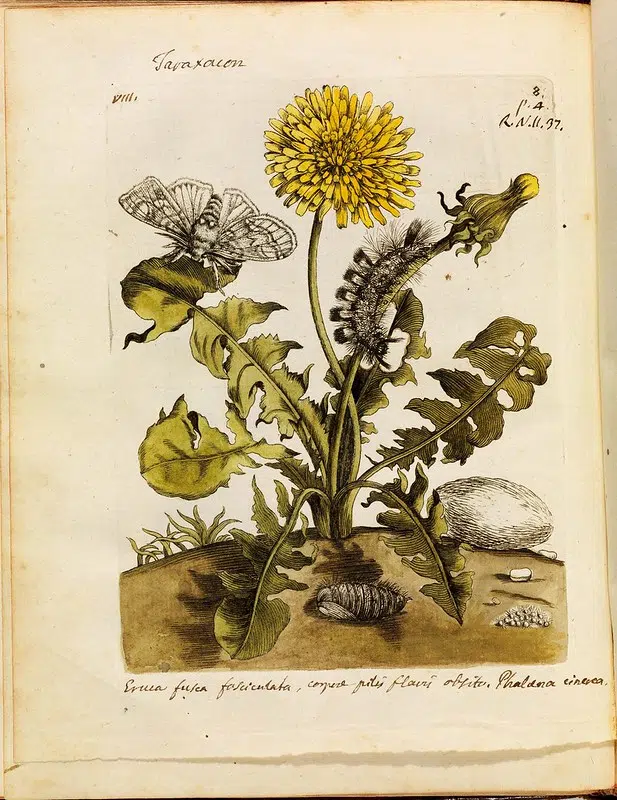 Taraxacon
VIII.
8.
p. 4.
R. N. 11. 37.
Eruca fusca fasciculata, corpore pilis flavis obsito. Phalæna cinerea.